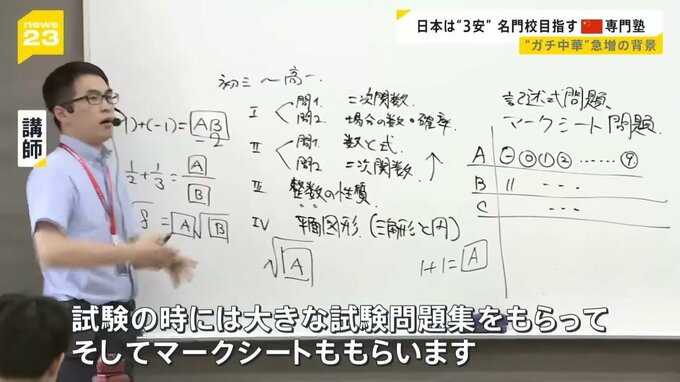 news
23
日本は“3安” 名門校目指す🇨🇳専門塾
“ガチ中華”急増の背景
講師
初三~高一
1)+(-1)=AB
=2
1/2+1/3=A/B
√8=A√B
I 問1. 二次関数
問2. 場合の数・確率
II 問1 数と式
問2 二次関数
III 整数の性質
IV 平面図形(三角形と円)
√A
1+1=A
記述式問題
マークシート問題
A ⊖ ⓪ ① ② …… ⑨
B 〃 ---
C ---
試験の時には大きな試験問題集をもらって
そしてマークシートももらいます